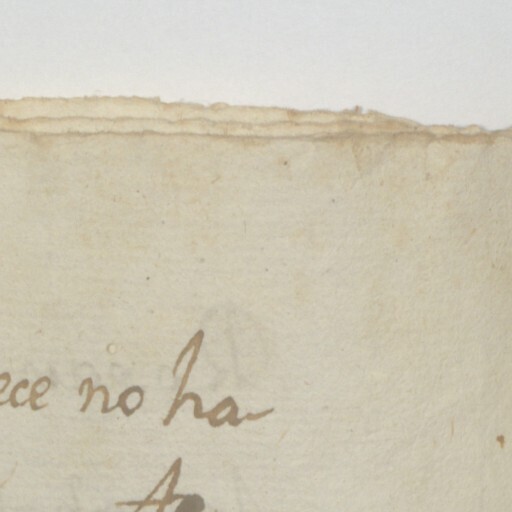 ece no ha